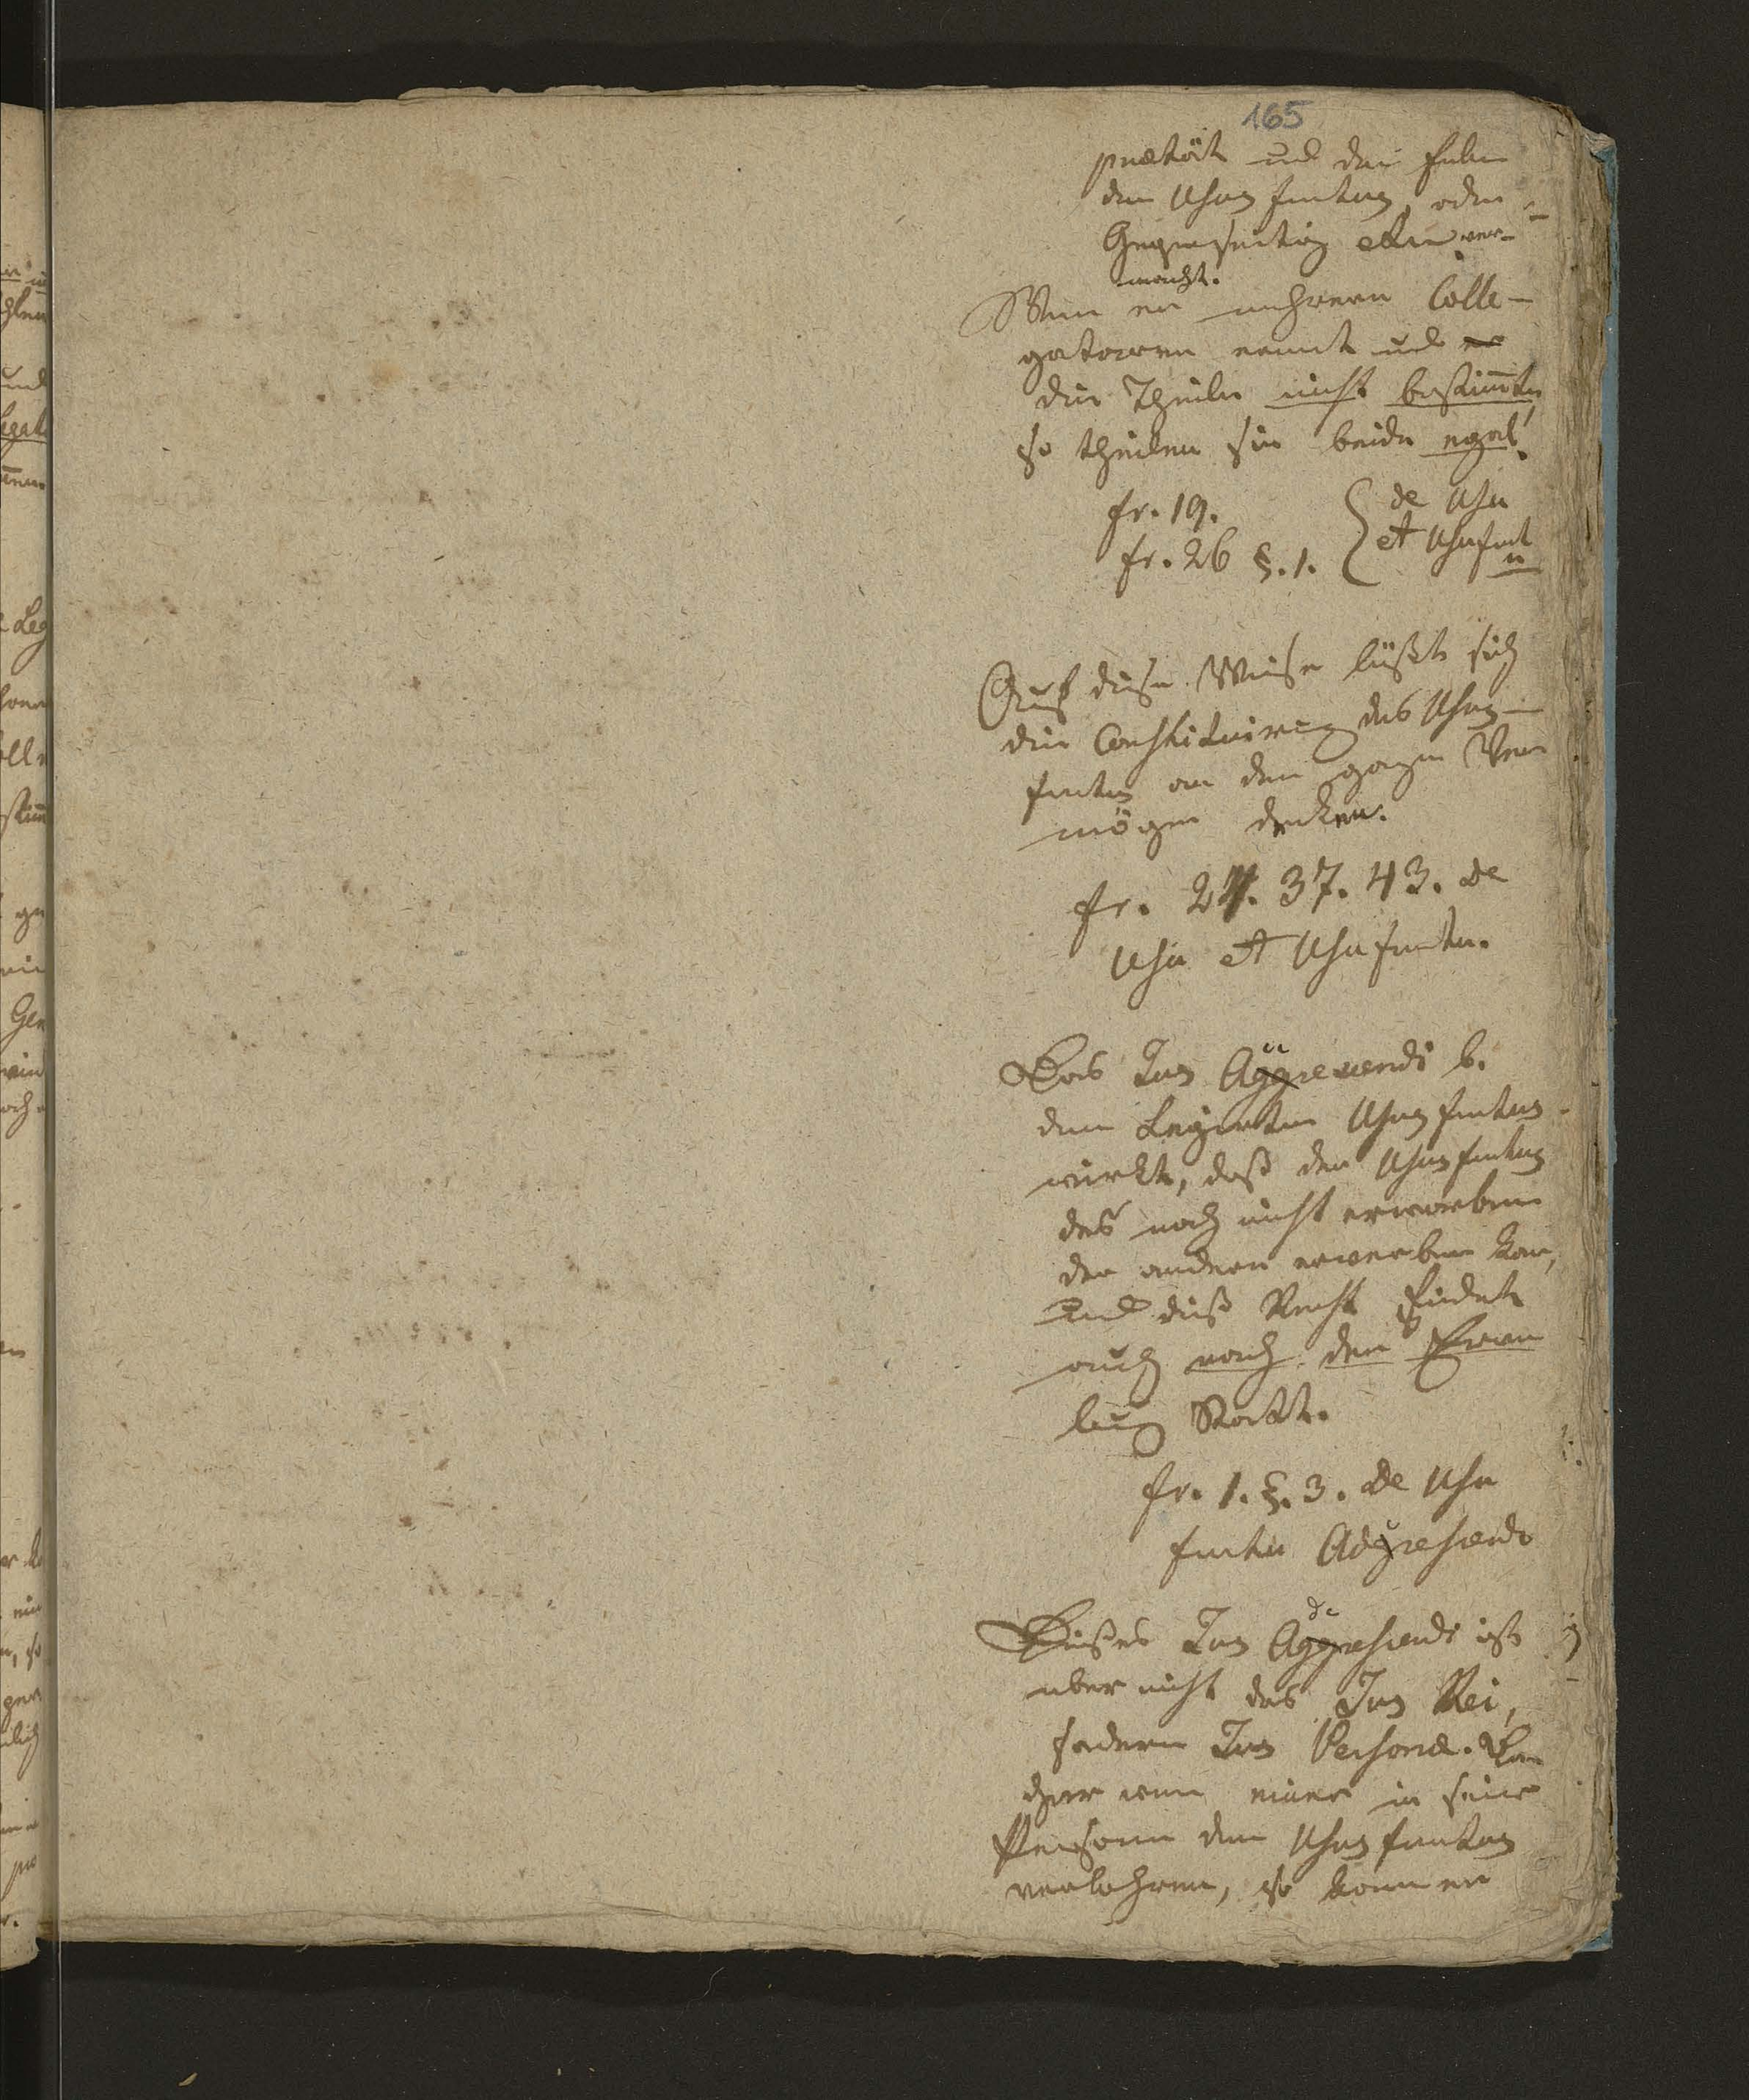 165
prietät und die halbe
den Ususfructus, oder
Gegenseitig etwas ver-
macht.
Wenn er mehrern Colle-
gatarien ernent und
die Theile nicht bestimmte
so theilen sie beide egal.
fr. 19.
fr. 26 §. 1. } de Usu et Usufructu
Auf diese Weise läßt sich
die Constituirung des Usus-
fructus an dem ganzen Ver
mögen denken.
fr. 24. 37. 43. de
Usu et Usufructu.
Das Jus Accrescendi b.
dem Legirten Ususfructus
wirkt, daß den Ususfructus
des noch nicht erworbenen
der andere erwerben kan,
und dieß Recht findet
auch nach der Erwer
bung Statt.
fr. 1. §. 3. de Usu
fructu Adcrescendo
Dieses Jus Adcrescendi ist
aber nicht das Jus Rei,
sondern Jus Personae. Da
her wenn einer in seiner
Person den Ususfructus
verlohren, so kann er